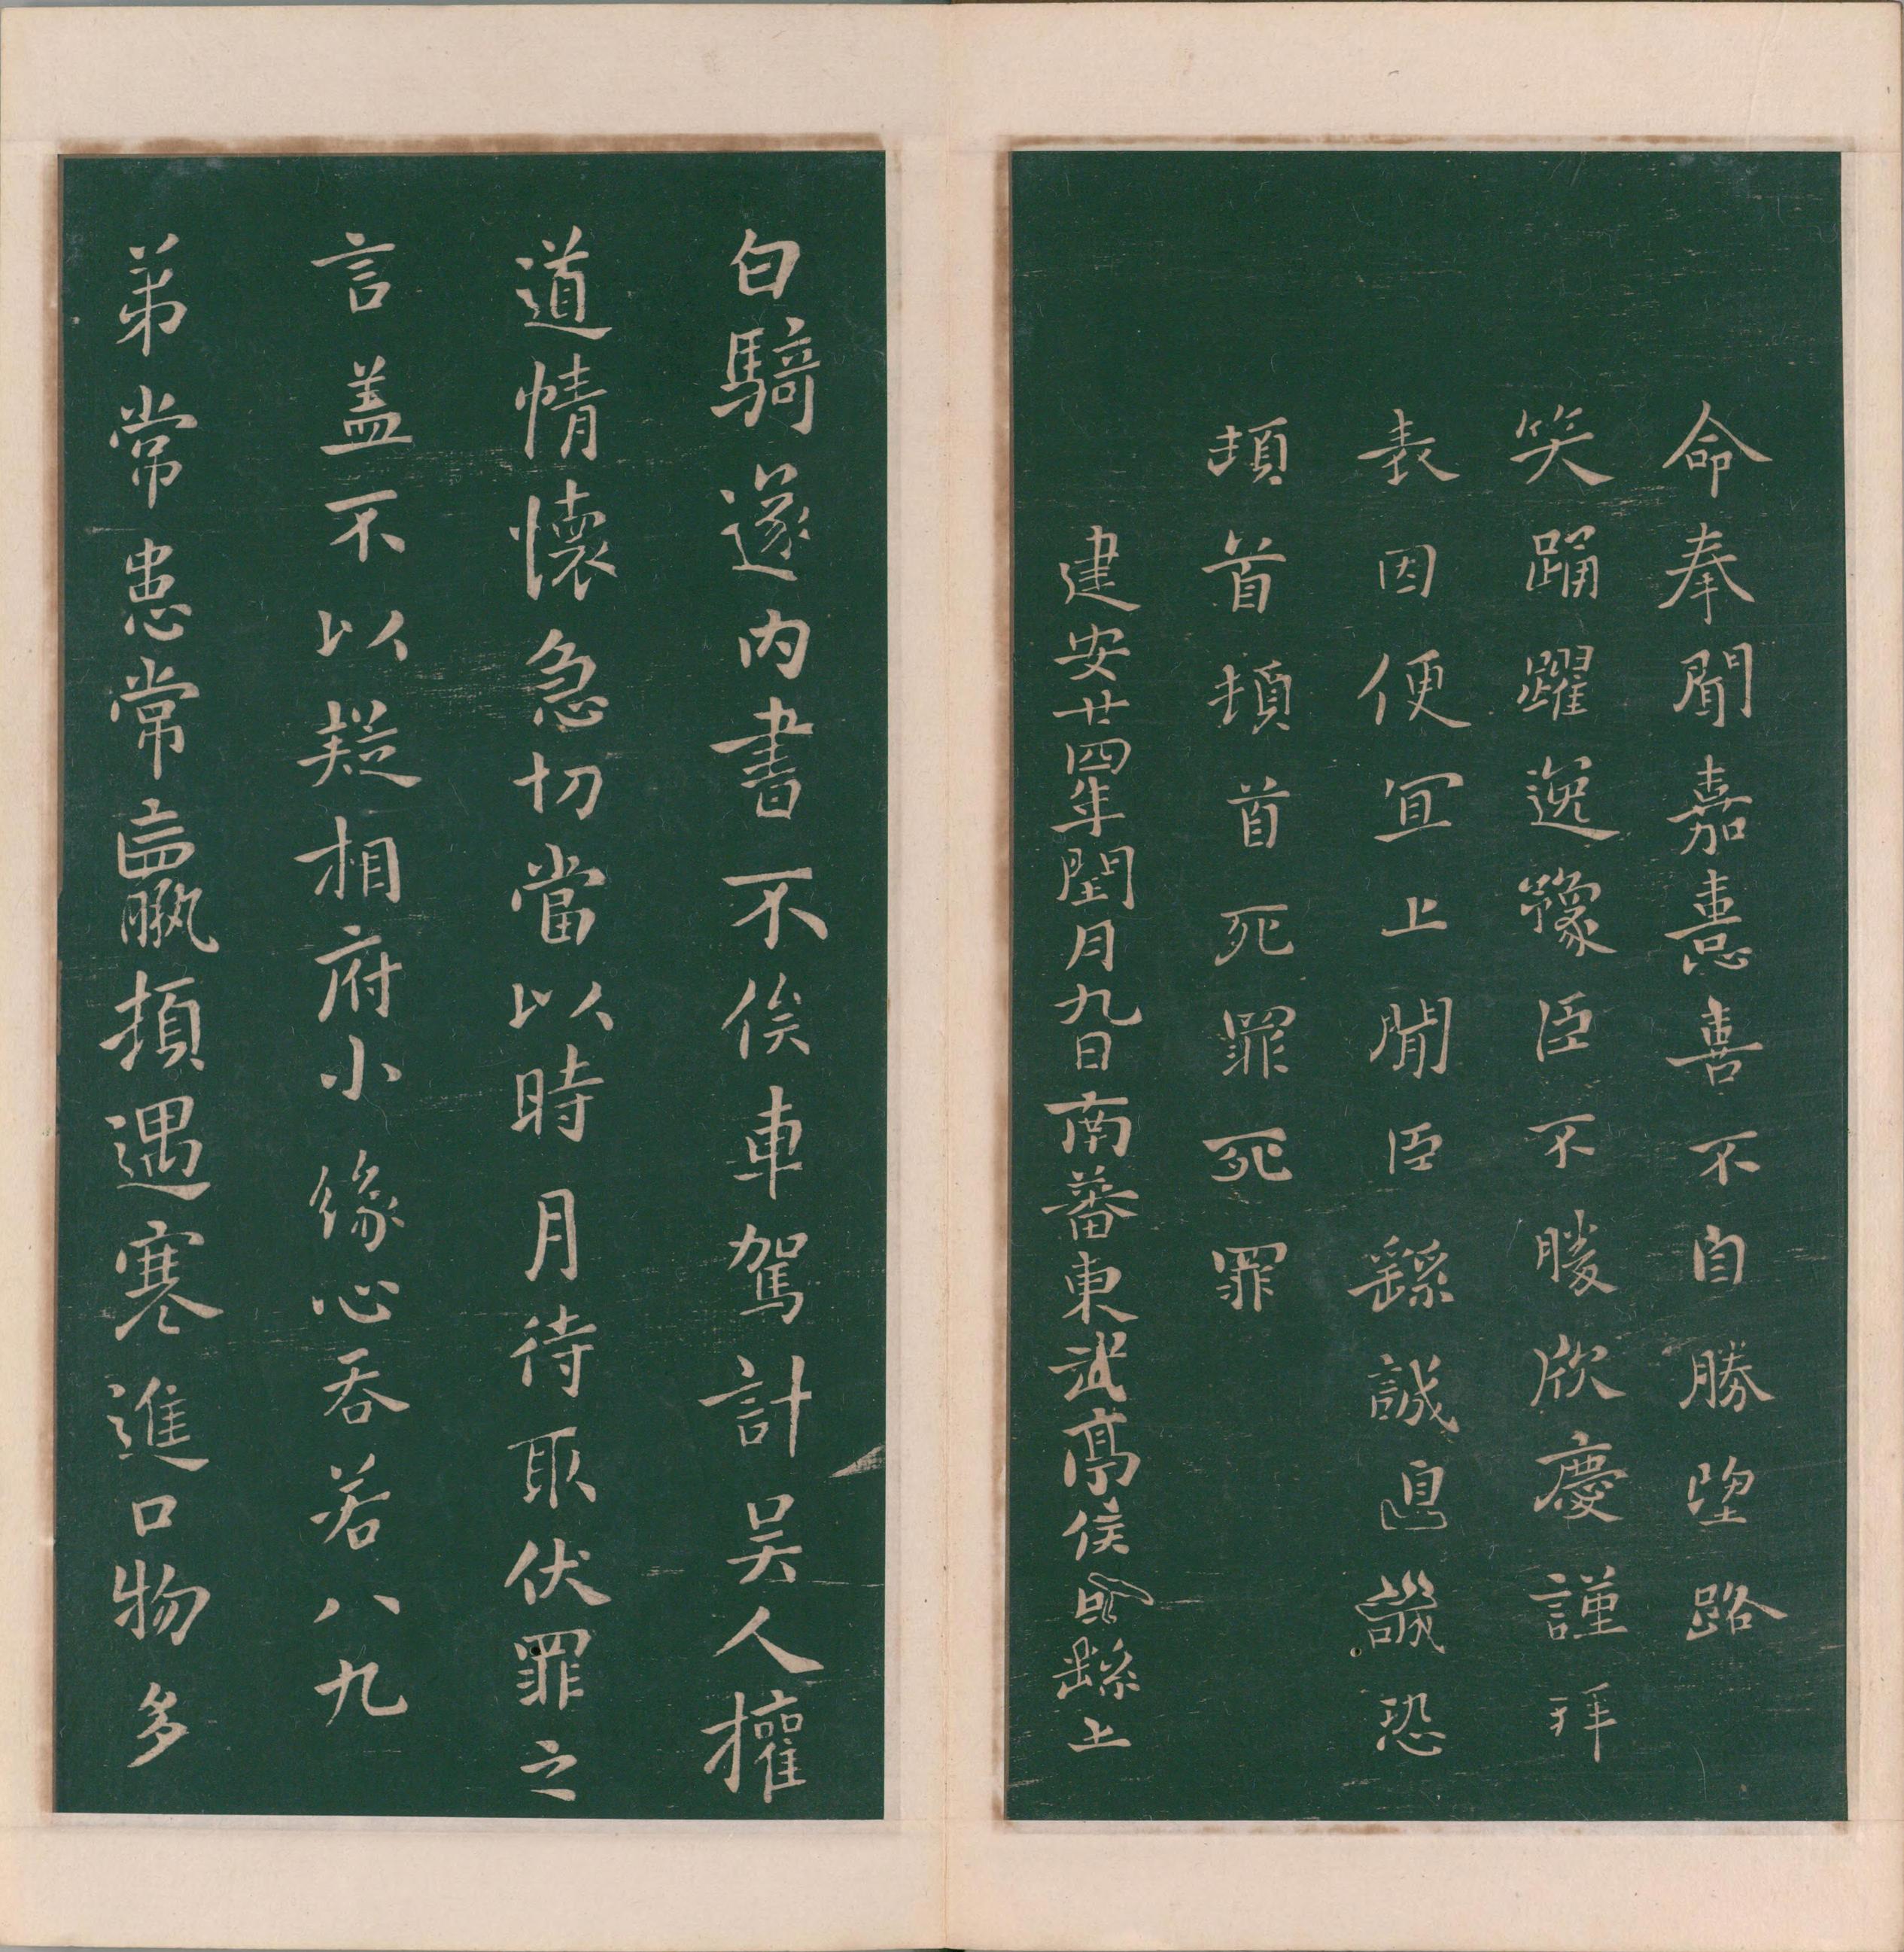 命奉聞嘉憙喜不自勝望路
笑踊躍逸豫臣不勝欣慶謹拜
表因便宜上聞臣繇誠惶誠恐
頓首頓首死罪死罪
建安廿四年閏月九日南蕃東武亭侯臣繇上
白騎遂內書不俟車駕計吳人權
道情懷急切當以時月待取伏罪之
言盖不以疑相府小緣心吞若八九
弟常患常羸頓遇寒進口物多